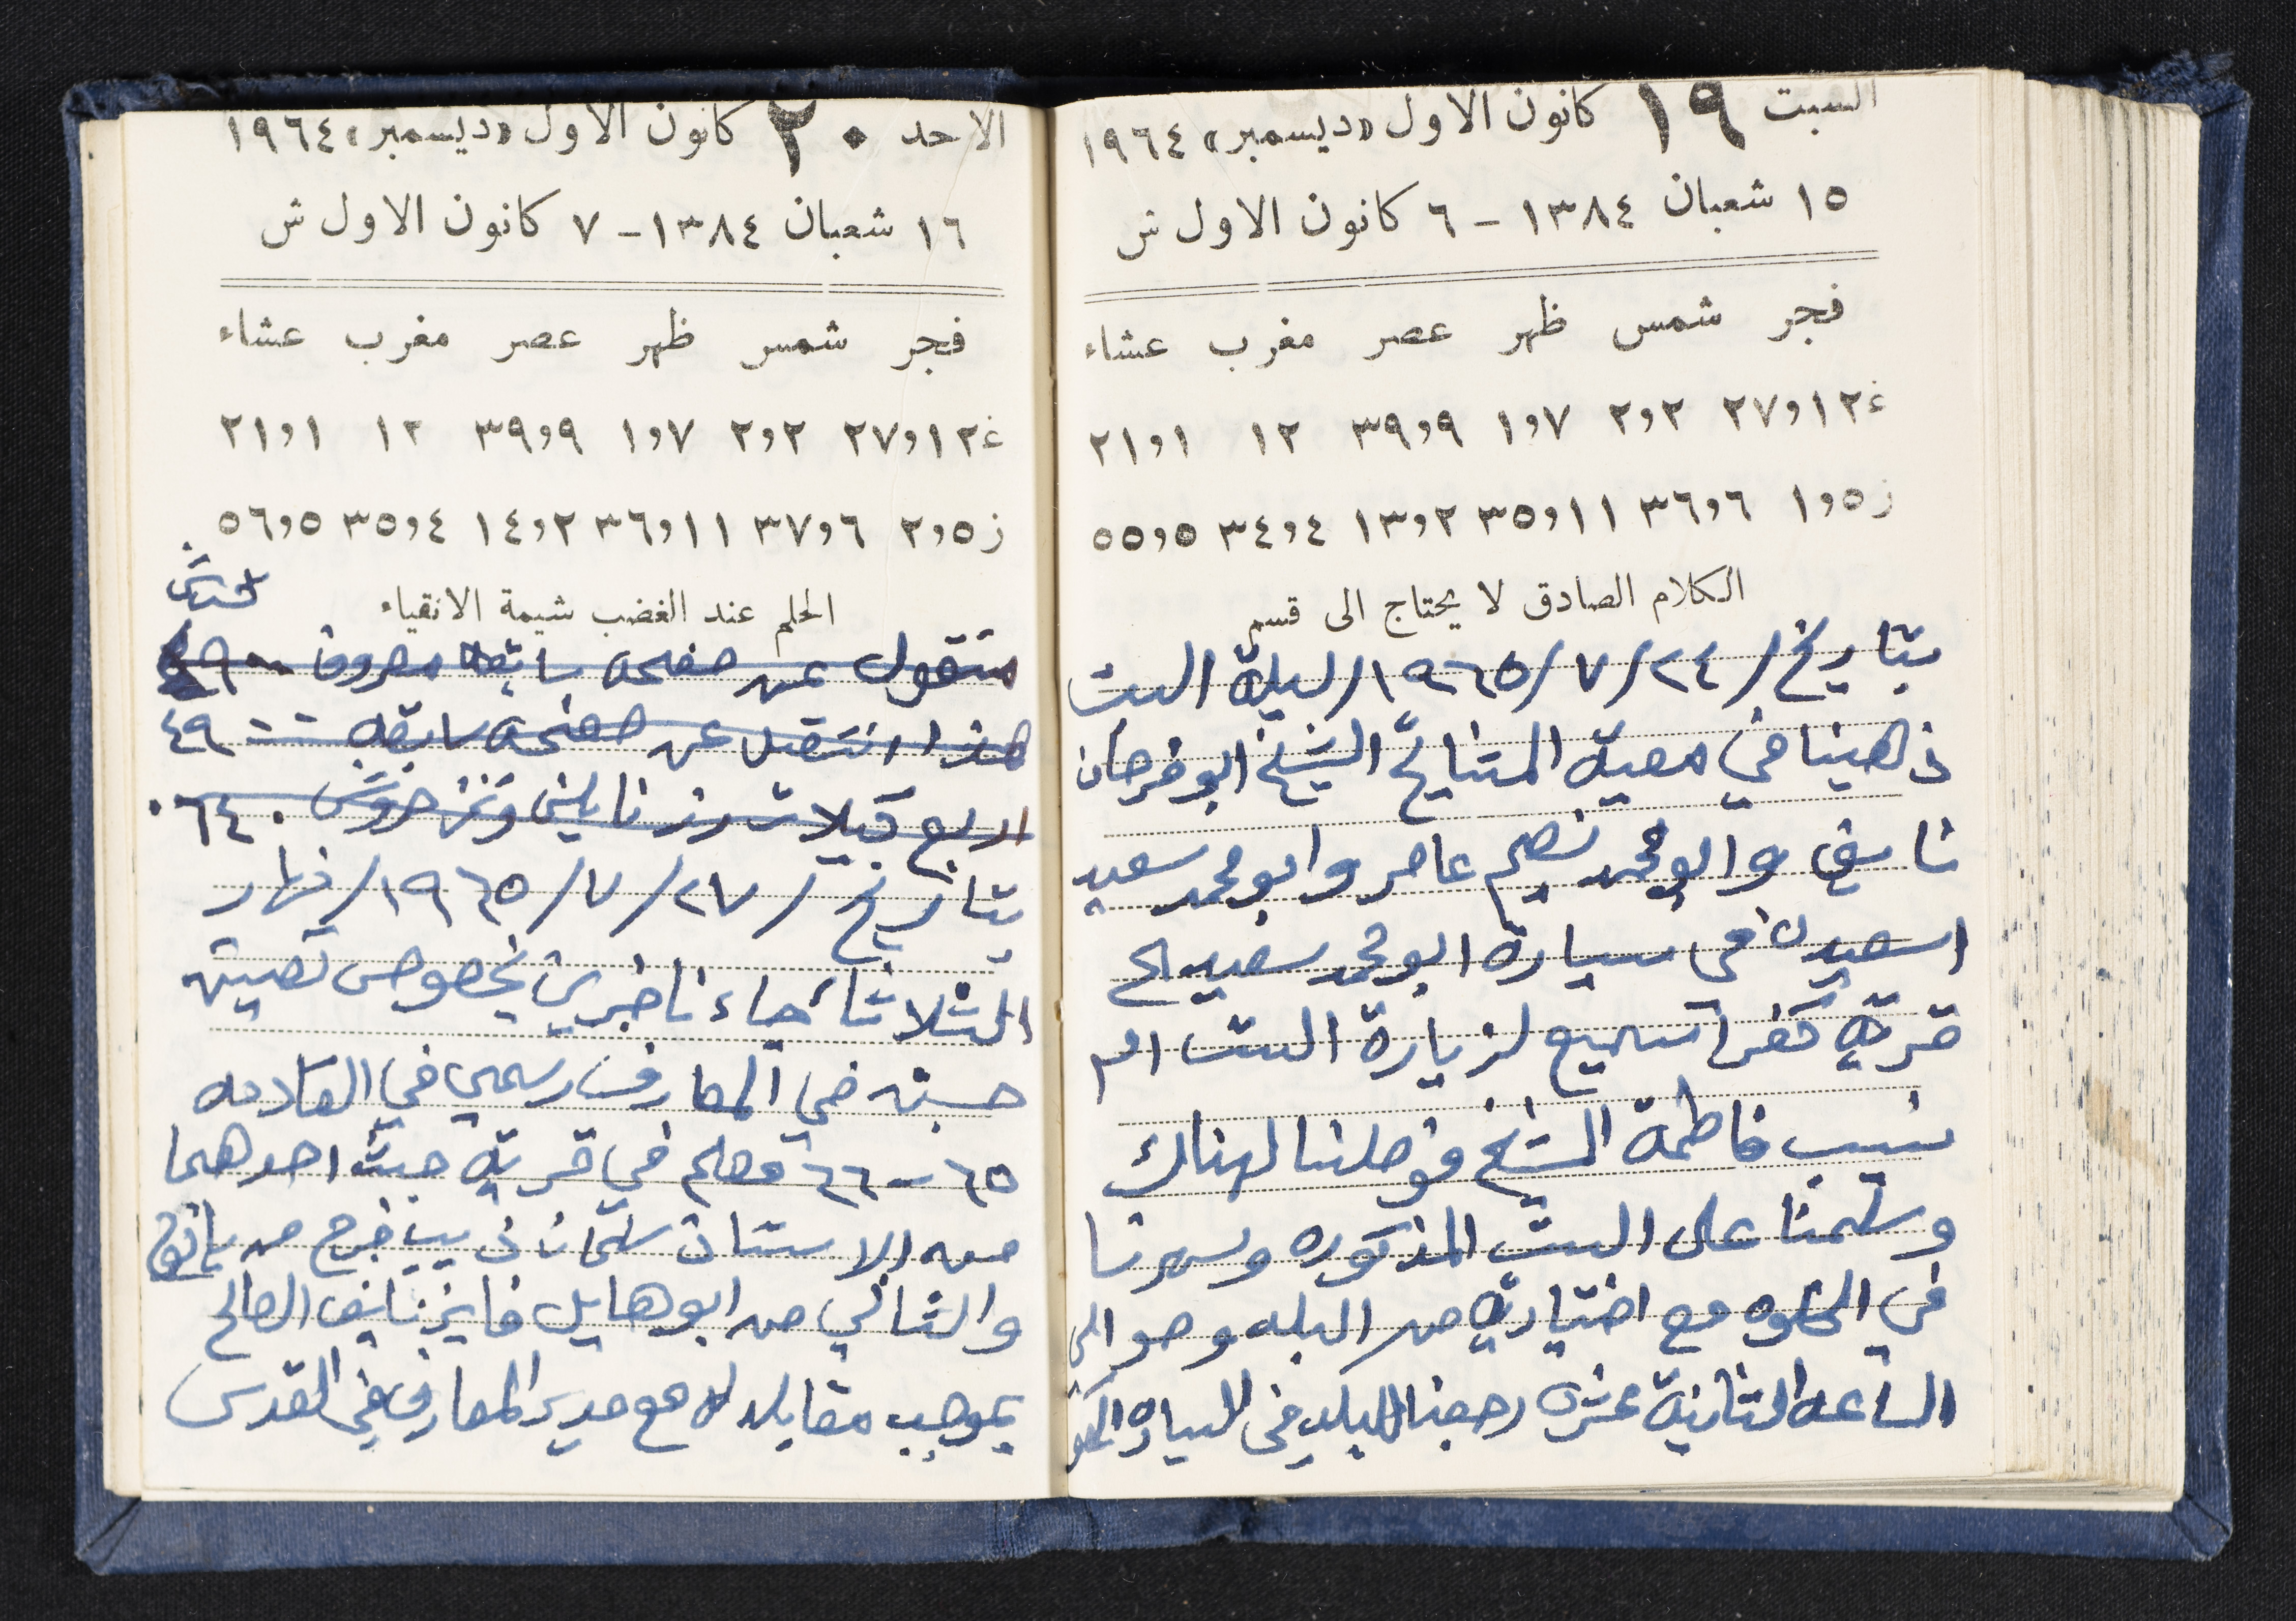 السبت ١٩ كانون الاول «ديسمبر» ١٩٦٤
١٥ شعبان ١٣٨٤ - ٦ كانون الاول ش
فجر شمس ظهر عصر مغرب عشاء
غ ١٢و٢٧ ٢و٢ ٧و١ ٩و٣٩ ١٢ ١و٢١
ز ٥و١ ٦و٣٦ ١١و٣٥ ٢و١٣ ٤و٣٤ ٥و٥٥
الكلام الصادق لا يحتاج الى قسم
بتاريخ / ٢٤ / ٧ / ١٩٦٥ / ليلة السبت
ذهبنا في معية المشايخ الشيخ ابو فرحان
نايف وابو محمد نصر عامر وابو محمد سعيد
اسعيد في سيارة ابو محمد سعيد الى
قرية كفر اسميع لزيارة الست ام
نسيب فاطمة الشيخ فوصلنا لهناك
وسلمنا على الست المذكوره وسهرنا
في الخلوه مع اختيارية من البلد وحوالي
الساعه الثانية عشره رجعنا للبلد في السياره
الاحد ٢٠ كانون الاول «ديسمبر» ١٩٦٤
١٦ شعبان ١٣٨٤ - ٧ كانون الاول ش
فجر شمس ظهر عصر مغرب عشاء
غ ١٢و٢٧ ٢و٢ ٧و١ ٩و٣٩ ١٢ ١و٢١
ز ٥و٢ ٦و٣٧ ١١و٣٦ ٢و١٤ ٤و٣٥ ٥و٥٦
الحلم عند الغضب شيمة الاتقياء
منقول عن صفحه سابقه مصروف
هذا انتقل عن صفحة سابقه ٤٩
اربع كيلات رز نايلس ٠٦٤٠
بتاريخ / ٢٧ / ٧ / ١٩٦٥ / نهار
الثلاثاء جاءنا خبرين بخصوص تعيين
حسين في المعارف رسمي في القادمه
٦٥ - ٦٦ معلم في قرية جث احدهما
من الاستاذ سلمان ذيب فرج من يانوح
والثاني من ابو هايل فايز نايف الصالح
بموجب مقابله له مع مدير المعارف في القدس